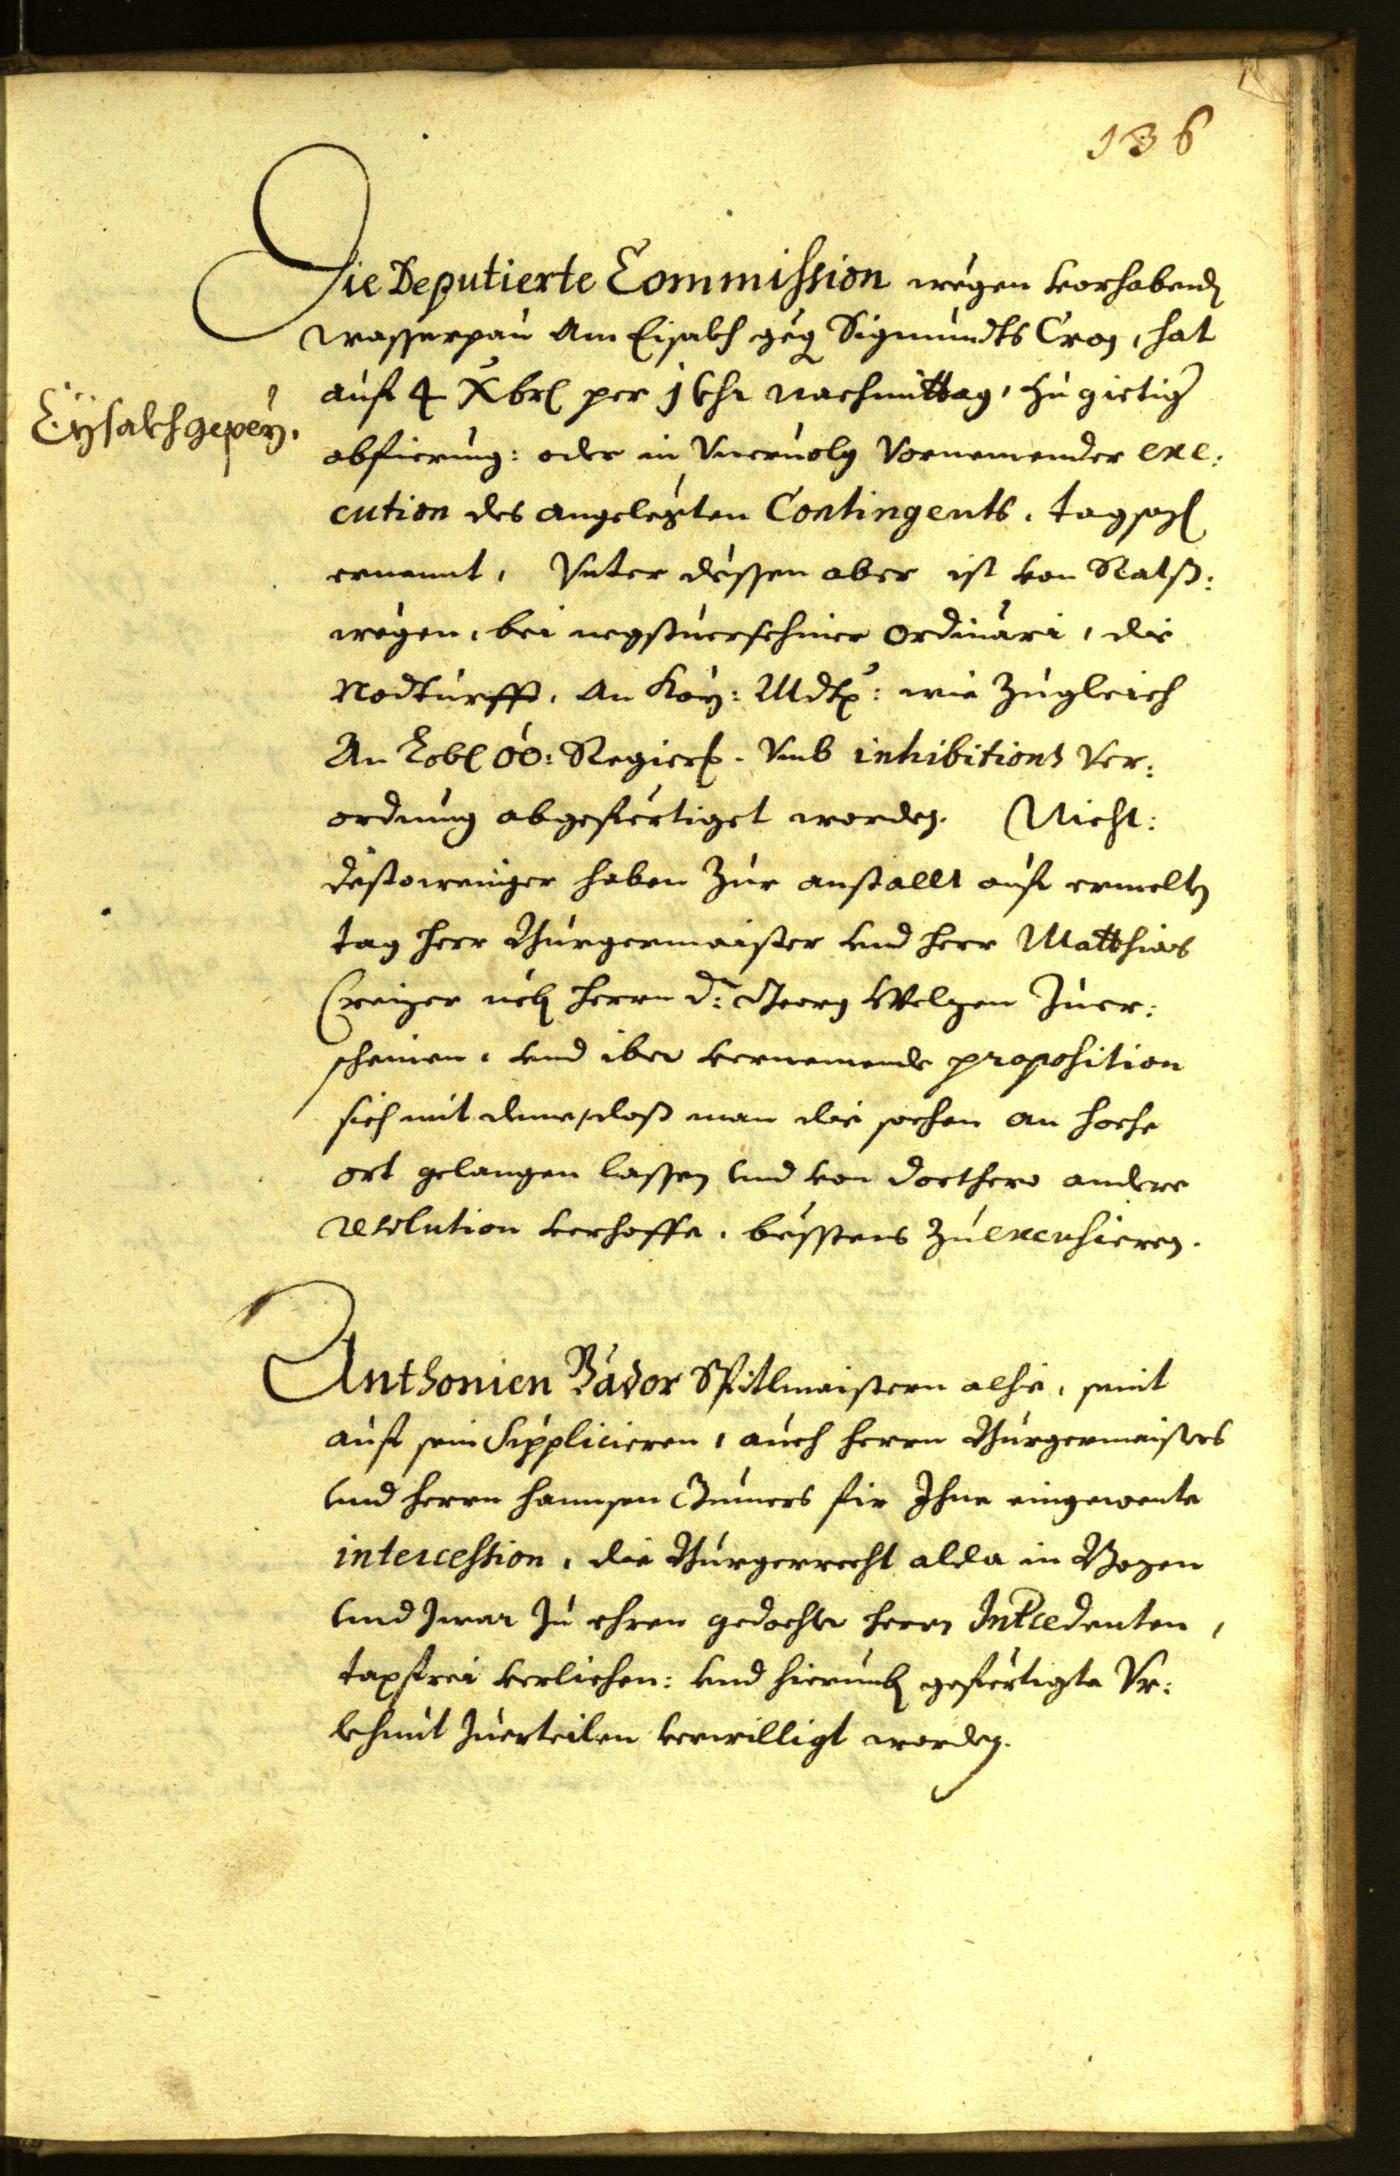 136
Die Deputierte Commission wegen vorhabend
wasserpau Am Eisakh geg Sigmundts Cron, hat
auf 4 Xbris per 1 Uhr nachmittag, zu gietig
Eysakhgepey.
abfierung: oder in Vneruolg Vornemender exe:
cution des angelegten Contingents, tagsaz
ernennt, Vnter dessen aber ist von Ratß:
wegen, bei negstuerschiner ordinari, die
Nodturfft, An Kay: Mdt: wie zugleich
An Lobl OÖ: Regierg. Vmb inhibitions Ver:
ordnung abgefertiget worden. Nicht:
destoweniger haben zur anstallt auf ermelten
tag herr Burgermaister vnd herr Matthias
neb herrn D: Georg Welzen zuer:
scheinen, vnd iber vernemende proposition
sich mit deme, daß man die sachen an hoche
ort gelangen lassen vnd von dorthero andere
resolution verhoffe, besstens zu excusieren.
Anthonien Spitlmaistern alhie, seint
auf sein Supplicieren, auch herrn Burgermaisters
vnd herrn hannsen für Ihne eingewente
intercession, die Burgerrecht alda in Bozen
vnd zwar zu ehren gedachter herrn Intcedenten,
taxfrei verlichen: vnd hierumb gefertigte Vr:
khunt zuerteilen verwilligt worden.